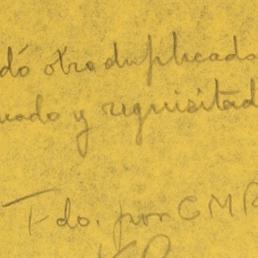 dó otro duplicado
uado y requisitad
Fdo. por CMR